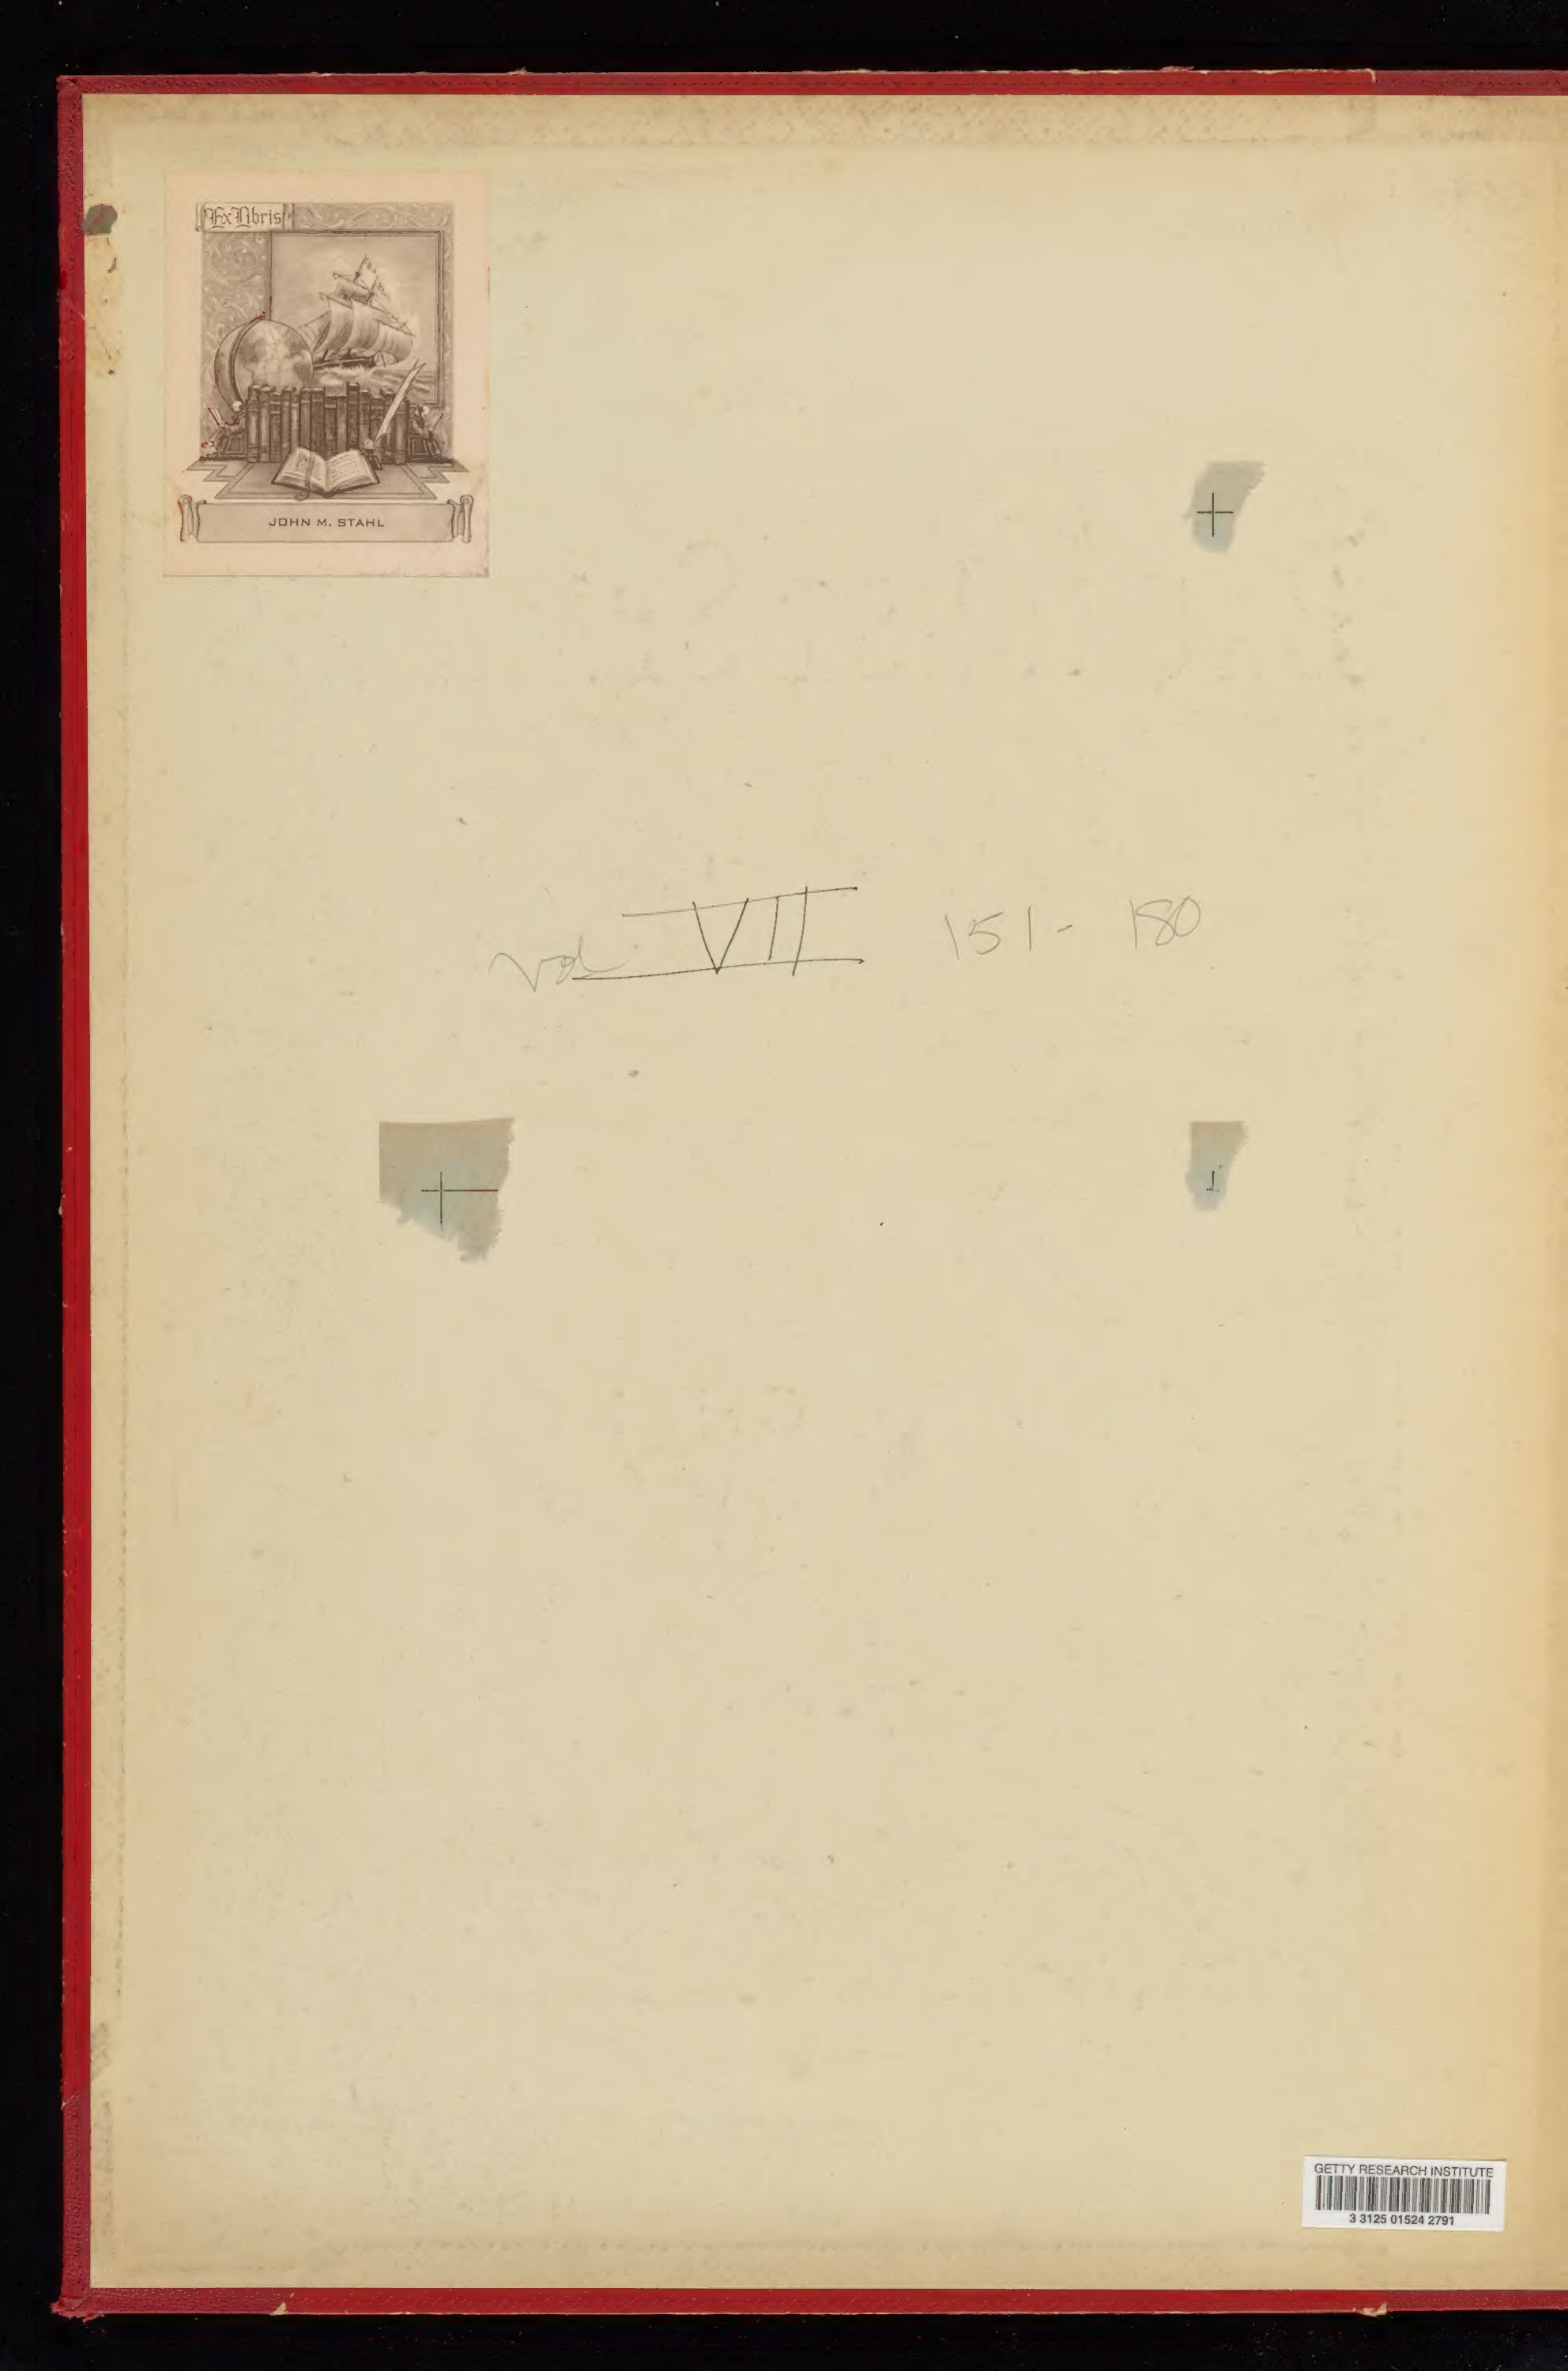 Ex Libris
JOHN M. STAHL
Vol VII 151 - 180
GETTY RESEARCH INSTITUTE
3 3125 01524 2791